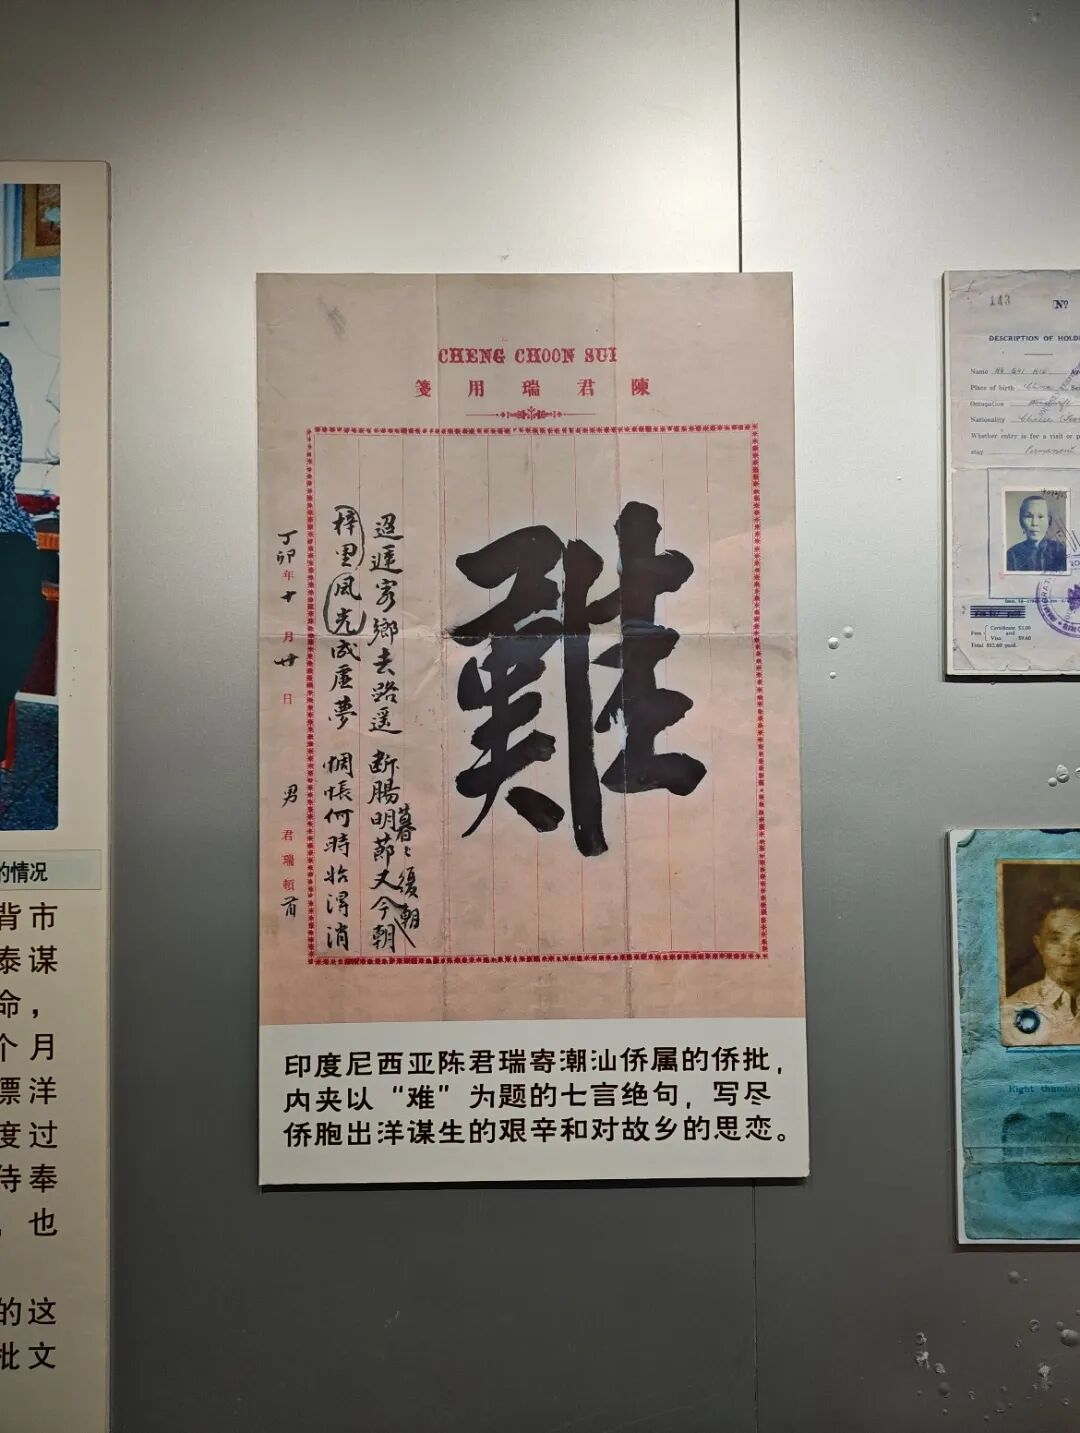 CHENG CHOON SUI
陳君瑞用箋
難
迢遞客鄉去路遥 断腸明節又今朝
暮〻復朝
梓里風光成虛夢 惆悵何時恰得消
丁卯年十月廿日 男 君瑞頓首
印度尼西亚陈君瑞寄潮汕侨属的侨批，
内夹以“难”为题的七言绝句，写尽
侨胞出洋谋生的艰辛和对故乡的思恋。
的情况
背市
泰谋
命，
个月
漂洋
度过
侍奉
，也
的这
批文
143 Nº
DESCRIPTION OF HOLD
Name
Place of birth China
Occupation
Nationality Chinese
Whether entry is for a visit or p
stay Permanent
Fees and
Certificate $3.00
Visa $9.60
Total $12.60 paid.
Right thumb